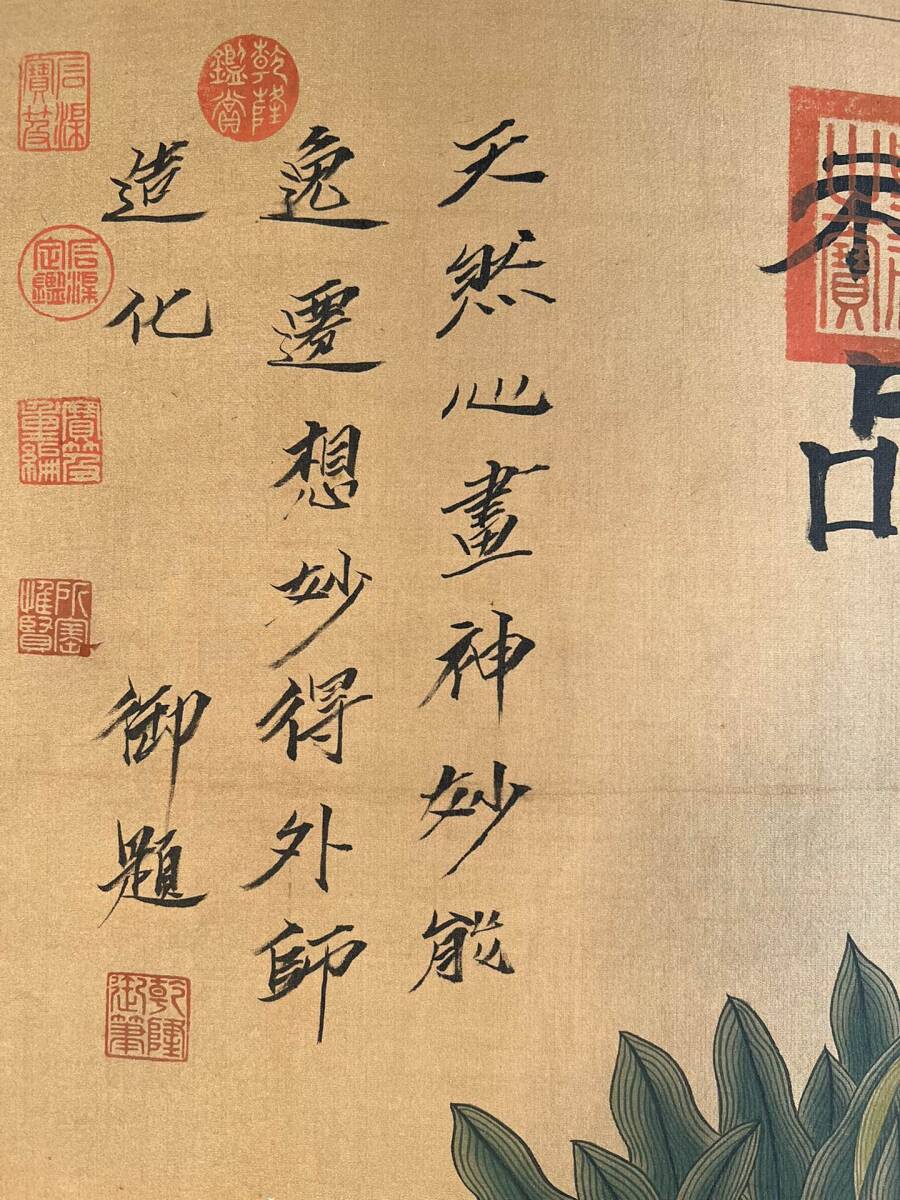 品
天然心畫神妙能
逸遷想妙得外師
造化 御題
乾隆鑑賞
石渠寶笈
石渠定鑑
寶笈重編
所寶惟賢
乾隆御筆